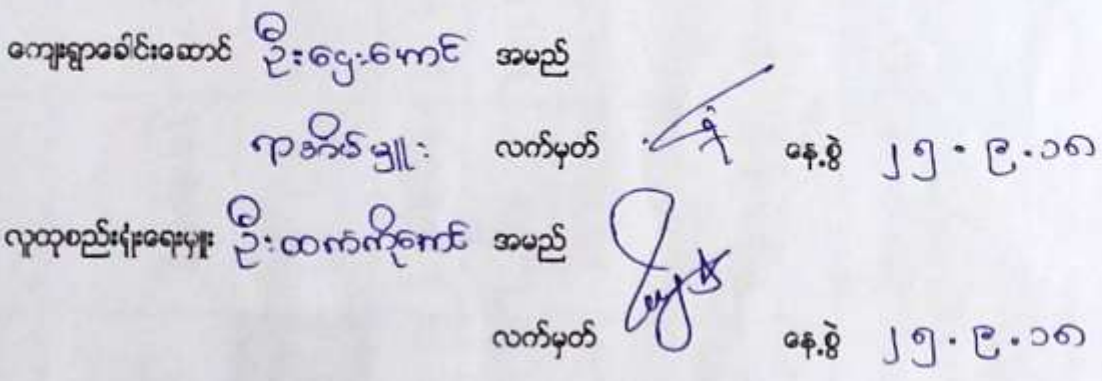 ကျေးရွာခေါင်းဆောင် ဦးဌေးအောင် အမည်
ရာအိမ်မှူး လက်မှတ် နေ့စွဲ ၂၅.၉.၁၈
လူထုစည်းရုံးရေးမှူး ဦးထက်ကိုကောင် အမည်
လက်မှတ် နေ့စွဲ ၂၅.၉.၁၈